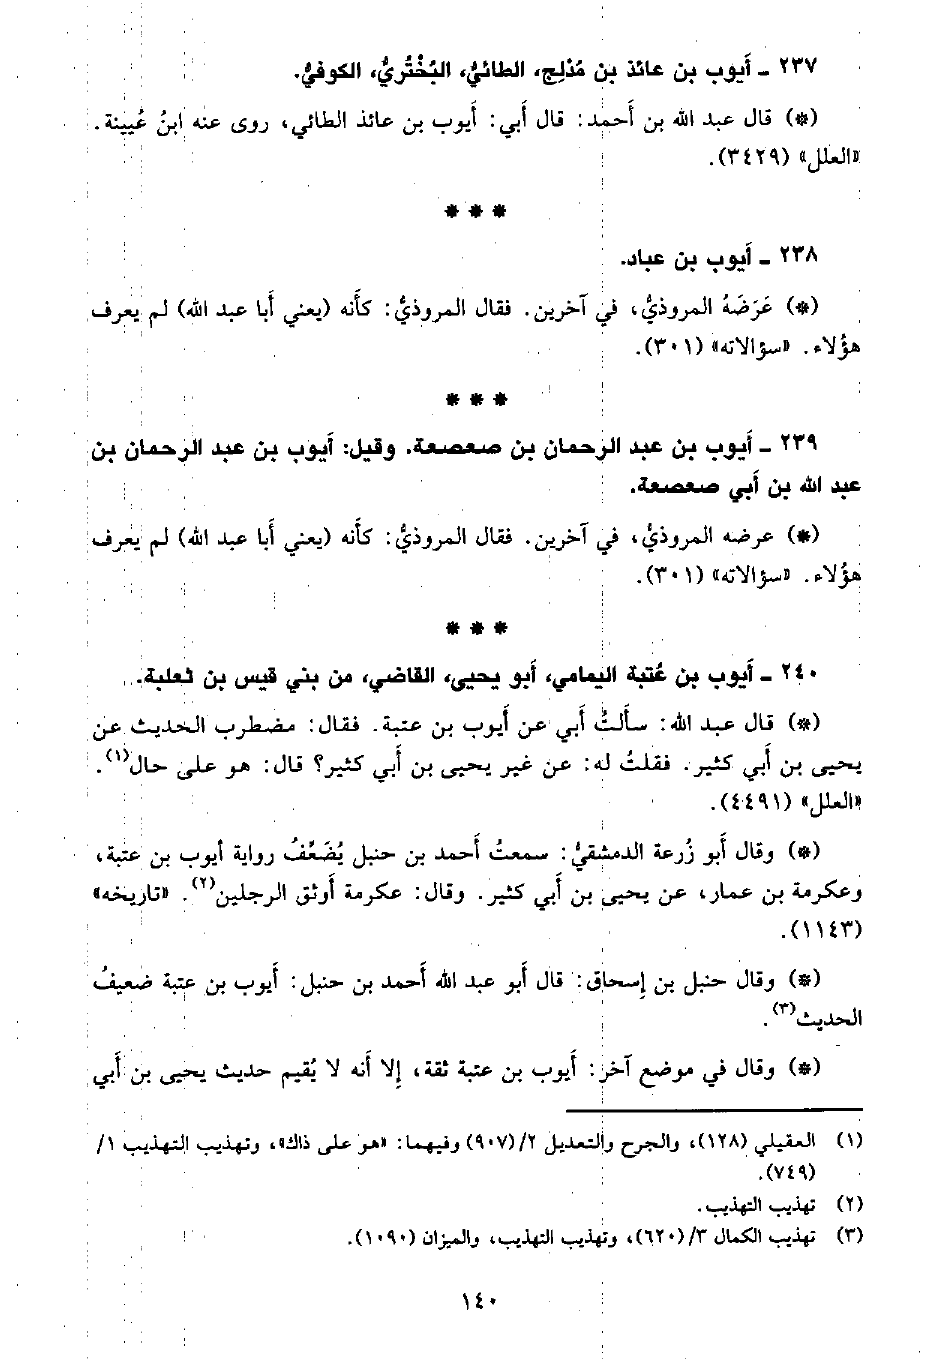 ٢٣٧ ـ أيوب بن عائذ بن مُدْلِج، الطائيُّ، البُحْتُريُّ، الكوفيُّ.
(*) قال عبد الله بن أحمد: قال أبي: أيوب بن عائذ الطائي، روى عنه ابنُ عُيينة.
«العلل» (٣٤٢٩).
* * *
٢٣٨ ـ أيوب بن عباد.
(*) عَرَضَهُ المروذيُّ، في آخرين. فقال المروذيُّ: كأنه (يعني أبا عبد الله) لم يعرف
هؤلاء. «سؤالاته» (٣٠١).
* * *
٢٣٩ ـ أيوب بن عبد الرحمان بن صعصعة. وقيل: أيوب بن عبد الرحمان بن
عبد الله بن أبي صعصعة.
(*) عرضه المروذيُّ، في آخرين. فقال المروذيُّ: كأنه (يعني أبا عبد الله) لم يعرف
هؤلاء. «سؤالاته» (٣٠١).
* * *
٢٤٠ ـ أيوب بن عُتبة اليمامي، أبو يحيى، القاضي، من بني قيس بن ثعلبة.
(*) قال عبد الله: سألتُ أبي عن أيوب بن عتبة. فقال: مضطرب الحديث عن
يحيى بن أبي كثير. فقلتُ له: عن غير يحيى بن أبي كثير؟ قال: هو على حال(١).
«العلل» (٤٤٩١).
(*) وقال أبو زُرعة الدمشقيُّ: سمعتُ أحمد بن حنبل يُضَعِّفُ رواية أيوب بن عتبة،
وعكرمة بن عمار، عن يحيى بن أبي كثير. وقال: عكرمة أوثق الرجلين(٢). «تاريخه»
(١١٤٣).
(*) وقال حنبل بن إسحاق: قال أبو عبد الله أحمد بن حنبل: أيوب بن عتبة ضعيفُ
الحديث(٣).
(*) وقال في موضع آخر: أيوب بن عتبة ثقة، إلا أنه لا يُقيم حديث يحيى بن أبي
(١) العقيلي (١٢٨)، والجرح والتعديل ٢/ (٩٠٧) وفيهما: «هو على ذاك»، وتهذيب التهذيب ١/
(٧٤٩).
(٢) تهذيب التهذيب.
(٣) تهذيب الكمال ٣/ (٦٢٠)، وتهذيب التهذيب، والميزان (١٠٩٠).
١٤٠